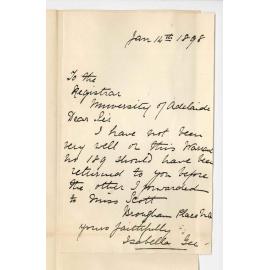 Jan 14th 1898
To the
Registrar
University of Adelaide
Dear Sir
I have not been
very well or this Warrant
no 189 should have been
returned to you before
the other I forwarded
to Miss Scott
Brougham Place
yours faithfully
Isabella